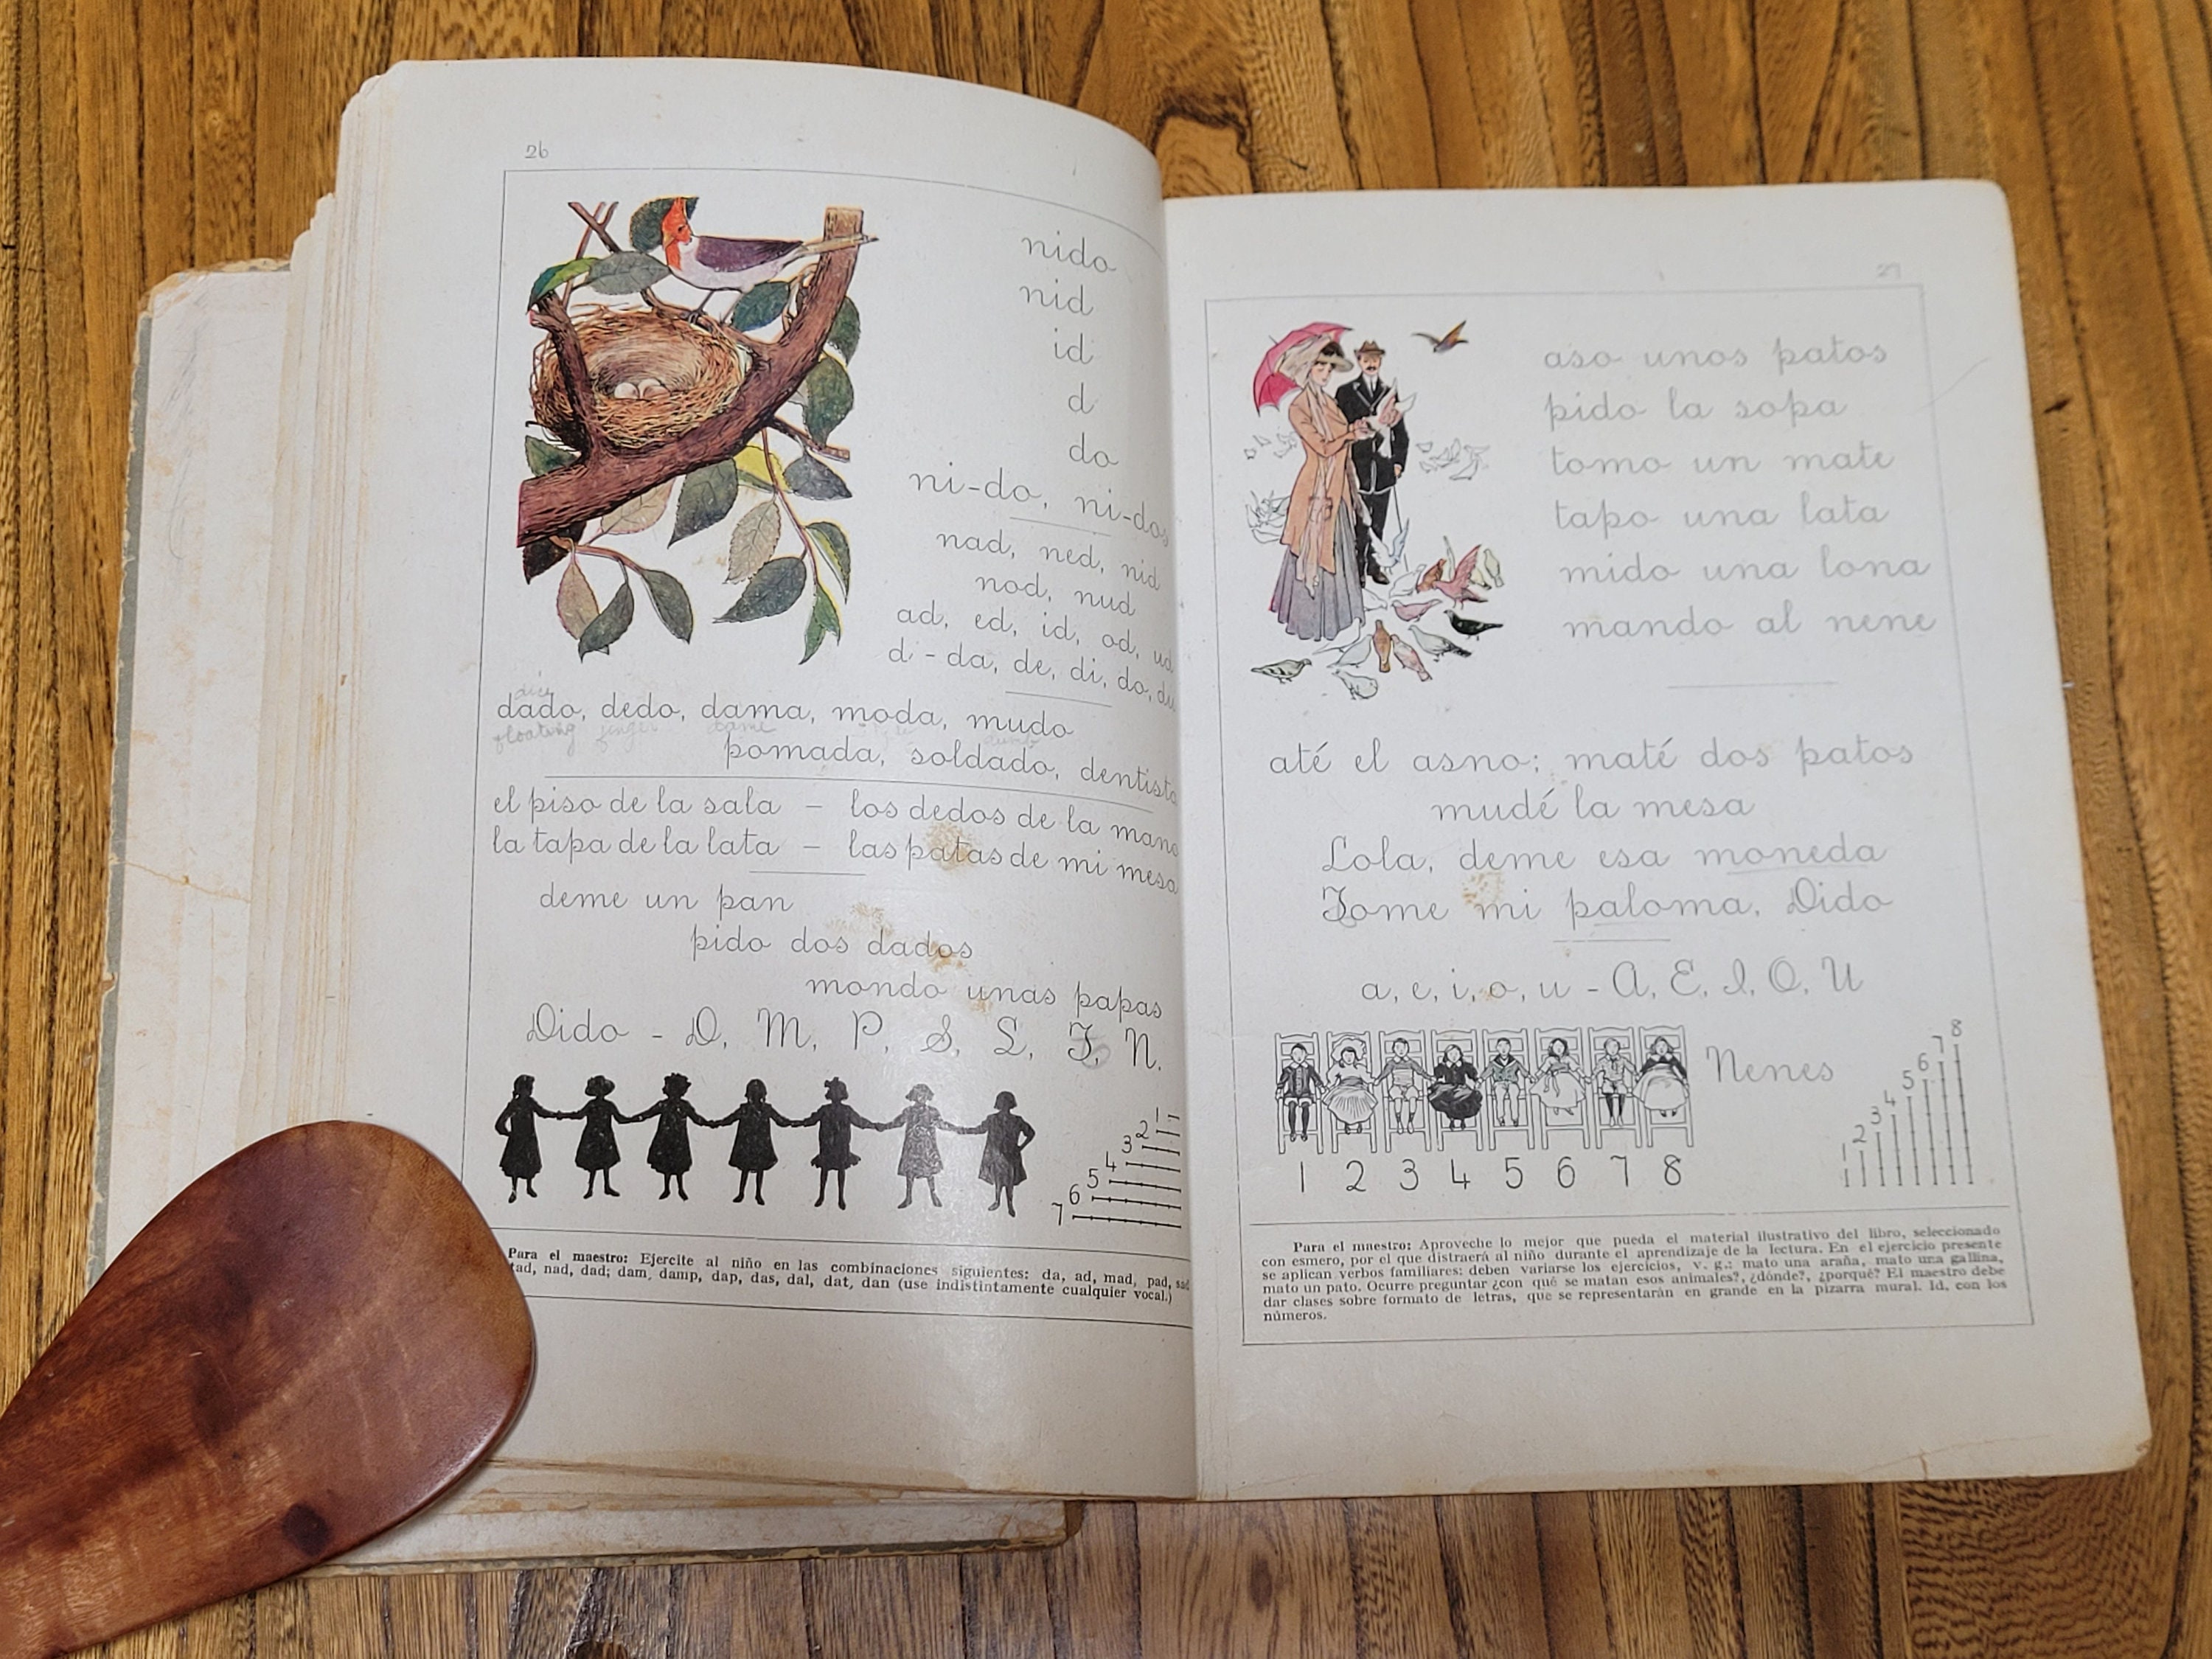 26
nido
nid
id
d
do
ni-do, ni-dos
nad, ned, nid
nod, nud
ad, ed, id, od, ud
d - da, de, di, do, du
dice
dado, dedo, dama, moda, mudo
floating finger dame dumb
pomada, soldado, dentista
el piso de la sala - los dedos de la mano
la tapa de la lata - las patas de mi mesa
deme un pan
pido dos dados
mondo unas papas
Dido - D, M, P, S, L, T, N.
1
2
3
4
5
6
7
Para el maestro: Ejercite al niño en las combinaciones siguientes: da, ad, mad, pad, sad
tad, nad, dad; dam, damp, dap, das, dal, dat, dan (use indistintamente cualquier vocal.)
27
aso unos patos
pido la sopa
tomo un mate
tapo una lata
mido una lona
mando al nene
até el asno; maté dos patos
mudé la mesa
Lola, deme esa moneda
Tome mi paloma, Dido
a, e, i, o, u - A, E, I, O, U
Nenes
1 2 3 4 5 6 7 8
1 2 3 4 5 6 7 8
Para el maestro: Aproveche lo mejor que pueda el material ilustrativo del libro, seleccionado
con esmero, por el que distraerá al niño durante el aprendizaje de la lectura. En el ejercicio presente
se aplican verbos familiares: deben variarse los ejercicios, v. g.: mato una araña, mato una gallina,
mato un pato. Ocurre preguntar ¿con qué se matan esos animales?, ¿dónde?, ¿porqué? El maestro debe
dar clases sobre formato de letras, que se representarán en grande en la pizarra mural. Id. con los
números.